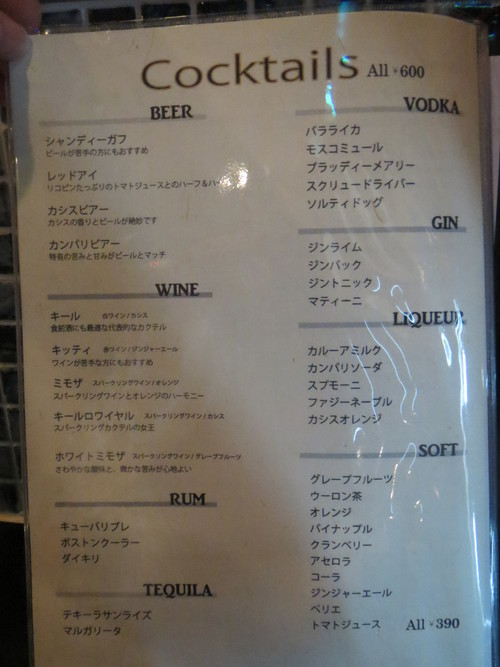 Cocktails All ¥600
BEER
シャンディーガフ
ビールが苦手の方にもおすすめ
レッドアイ
リコピンたっぷりのトマトジュースとのハーフ&ハーフ
カシスビアー
カシスの香りとビールが絶妙です
カンパリビアー
特有の苦みと甘みがビールとマッチ
WINE
キール 白ワイン/カシス
食前酒にも最適な代表的なカクテル
キッティ 赤ワイン/ジンジャーエール
ワインが苦手な方にもおすすめ
ミモザ スパークリングワイン/オレンジ
スパークリングワインとオレンジのハーモニー
キールロワイヤル スパークリングワイン/カシス
スパークリングカクテルの女王
ホワイトミモザ スパークリングワイン/グレープフルーツ
さわやかな酸味と、微かな苦みが心地よい
RUM
キューバリブレ
ボストンクーラー
ダイキリ
TEQUILA
テキーラサンライズ
マルガリータ
VODKA
バラライカ
モスコミュール
ブラッディーメアリー
スクリュードライバー
ソルティドッグ
GIN
ジンライム
ジンバック
ジントニック
マティーニ
LIQUEUR
カルーアミルク
カンパリソーダ
スプモーニ
ファジーネーブル
カシスオレンジ
SOFT
グレープフルーツ
ウーロン茶
オレンジ
パイナップル
クランベリー
アセロラ
コーラ
ジンジャーエール
ペリエ
トマトジュース All ¥390